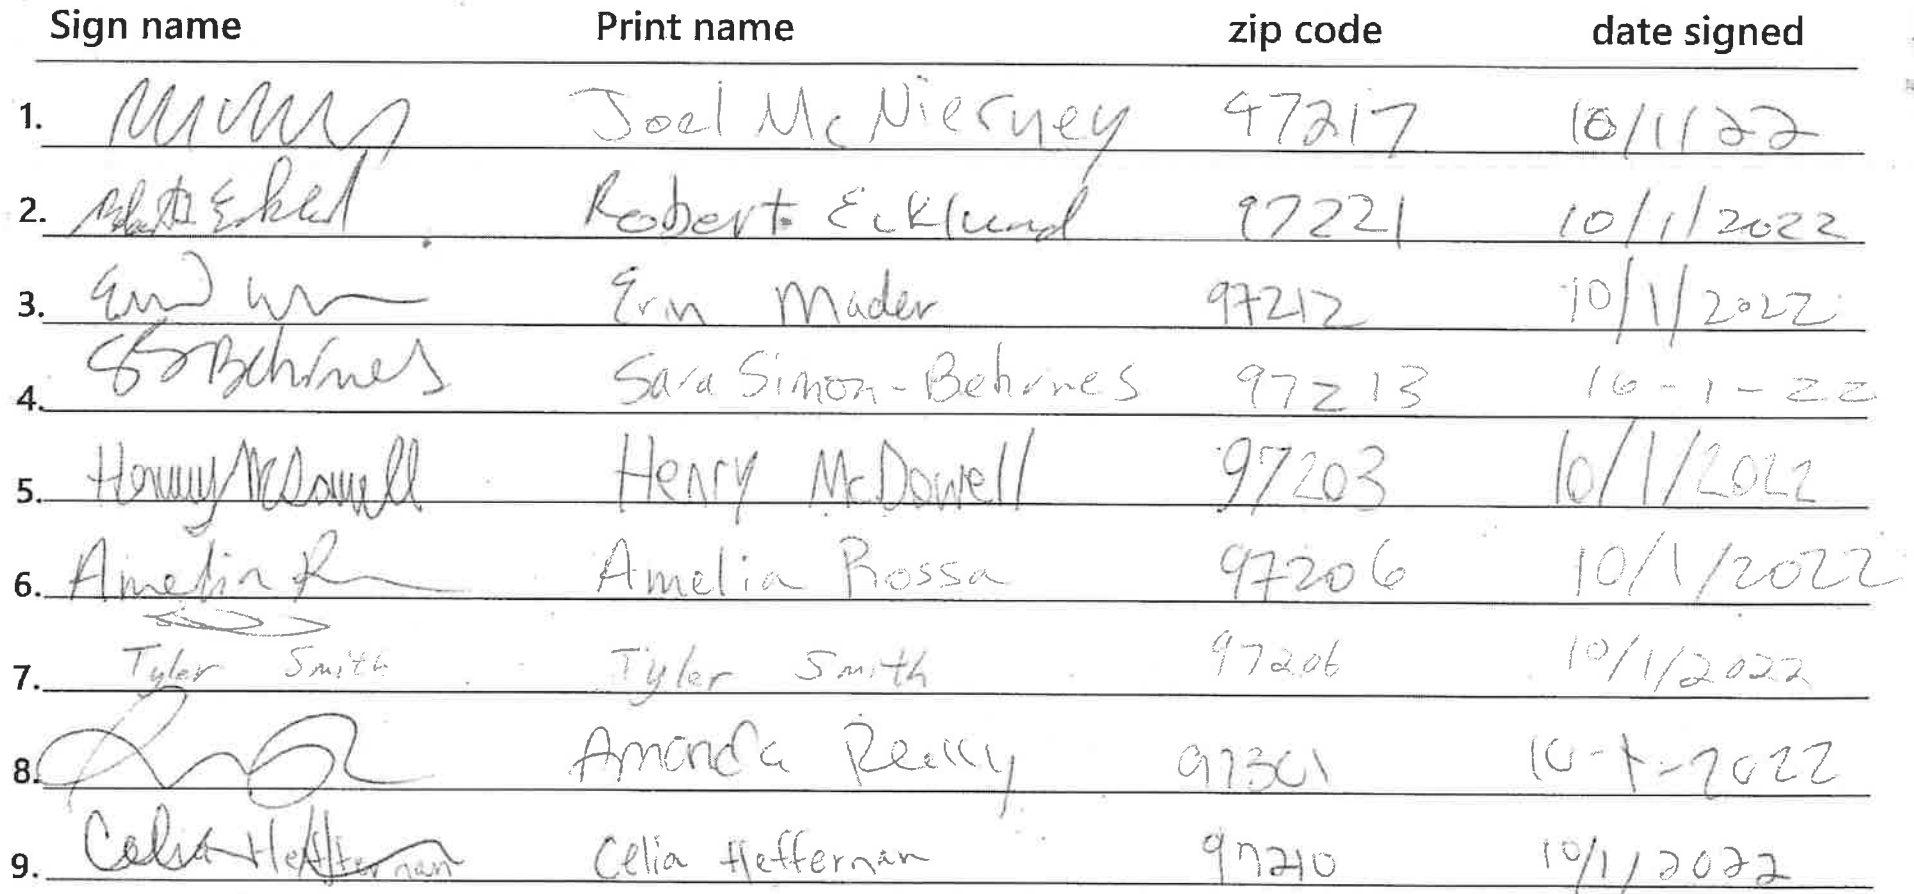 Sign name Print name zip code date signed
1. Joel McNierney 97217 10/1/22
2. Robert Ecklund Robert Ecklund 97221 10/1/2022
3. Erin Mader 97212 10/1/2022
4. SSBehrnes Sara Simon-Behrnes 97213 10-1-22
5. Henry McDowell Henry McDowell 97203 10/1/2022
6. Amelia R Amelia Rossa 97206 10/1/2022
7. Tyler Smith Tyler Smith 97206 10/1/2022
8. Amanda Reilly 97301 10-1-2022
9. Celia Heffernan Celia Heffernan 97210 10/1/2022